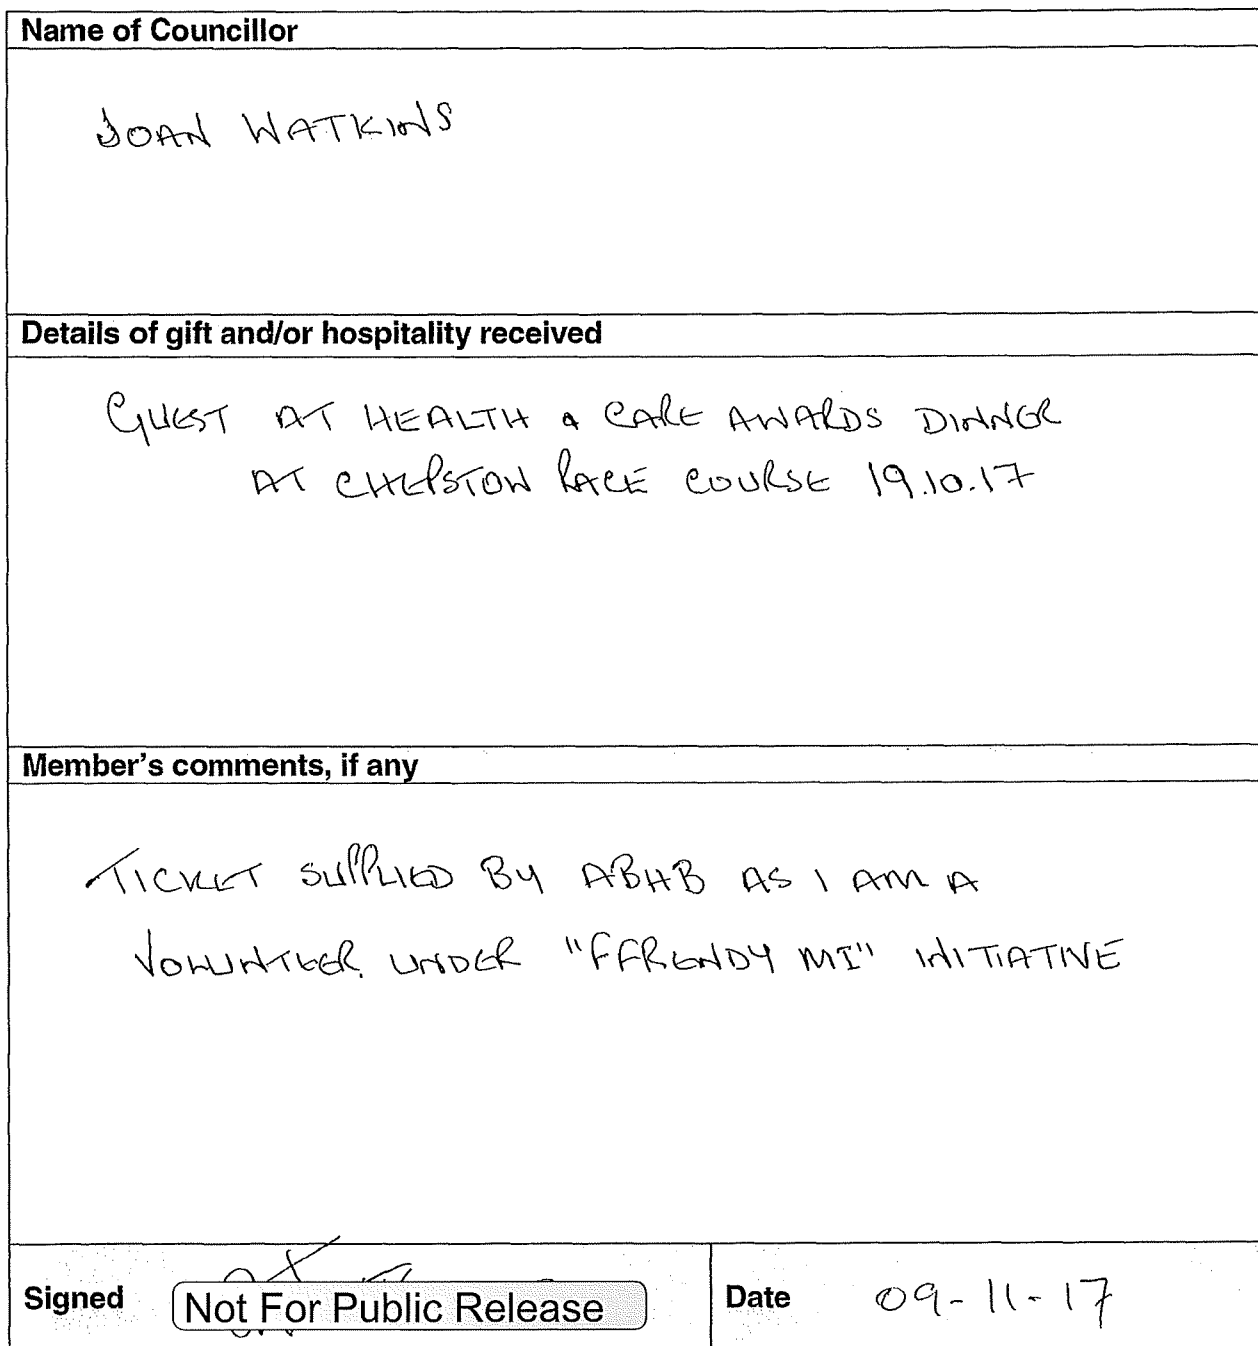 Name of Councillor
JOAN WATKINS
Details of gift and/or hospitality received
GUEST AT HEALTH & CARE AWARDS DINNER
AT CHEPSTOW RACE COURSE 19.10.17
Member's comments, if any
TICKET SUPPLIED BY ABHB AS I AM A
VOLUNTEER UNDER "FFRENDY MI" INITIATIVE
Signed Not For Public Release Date 09-11-17